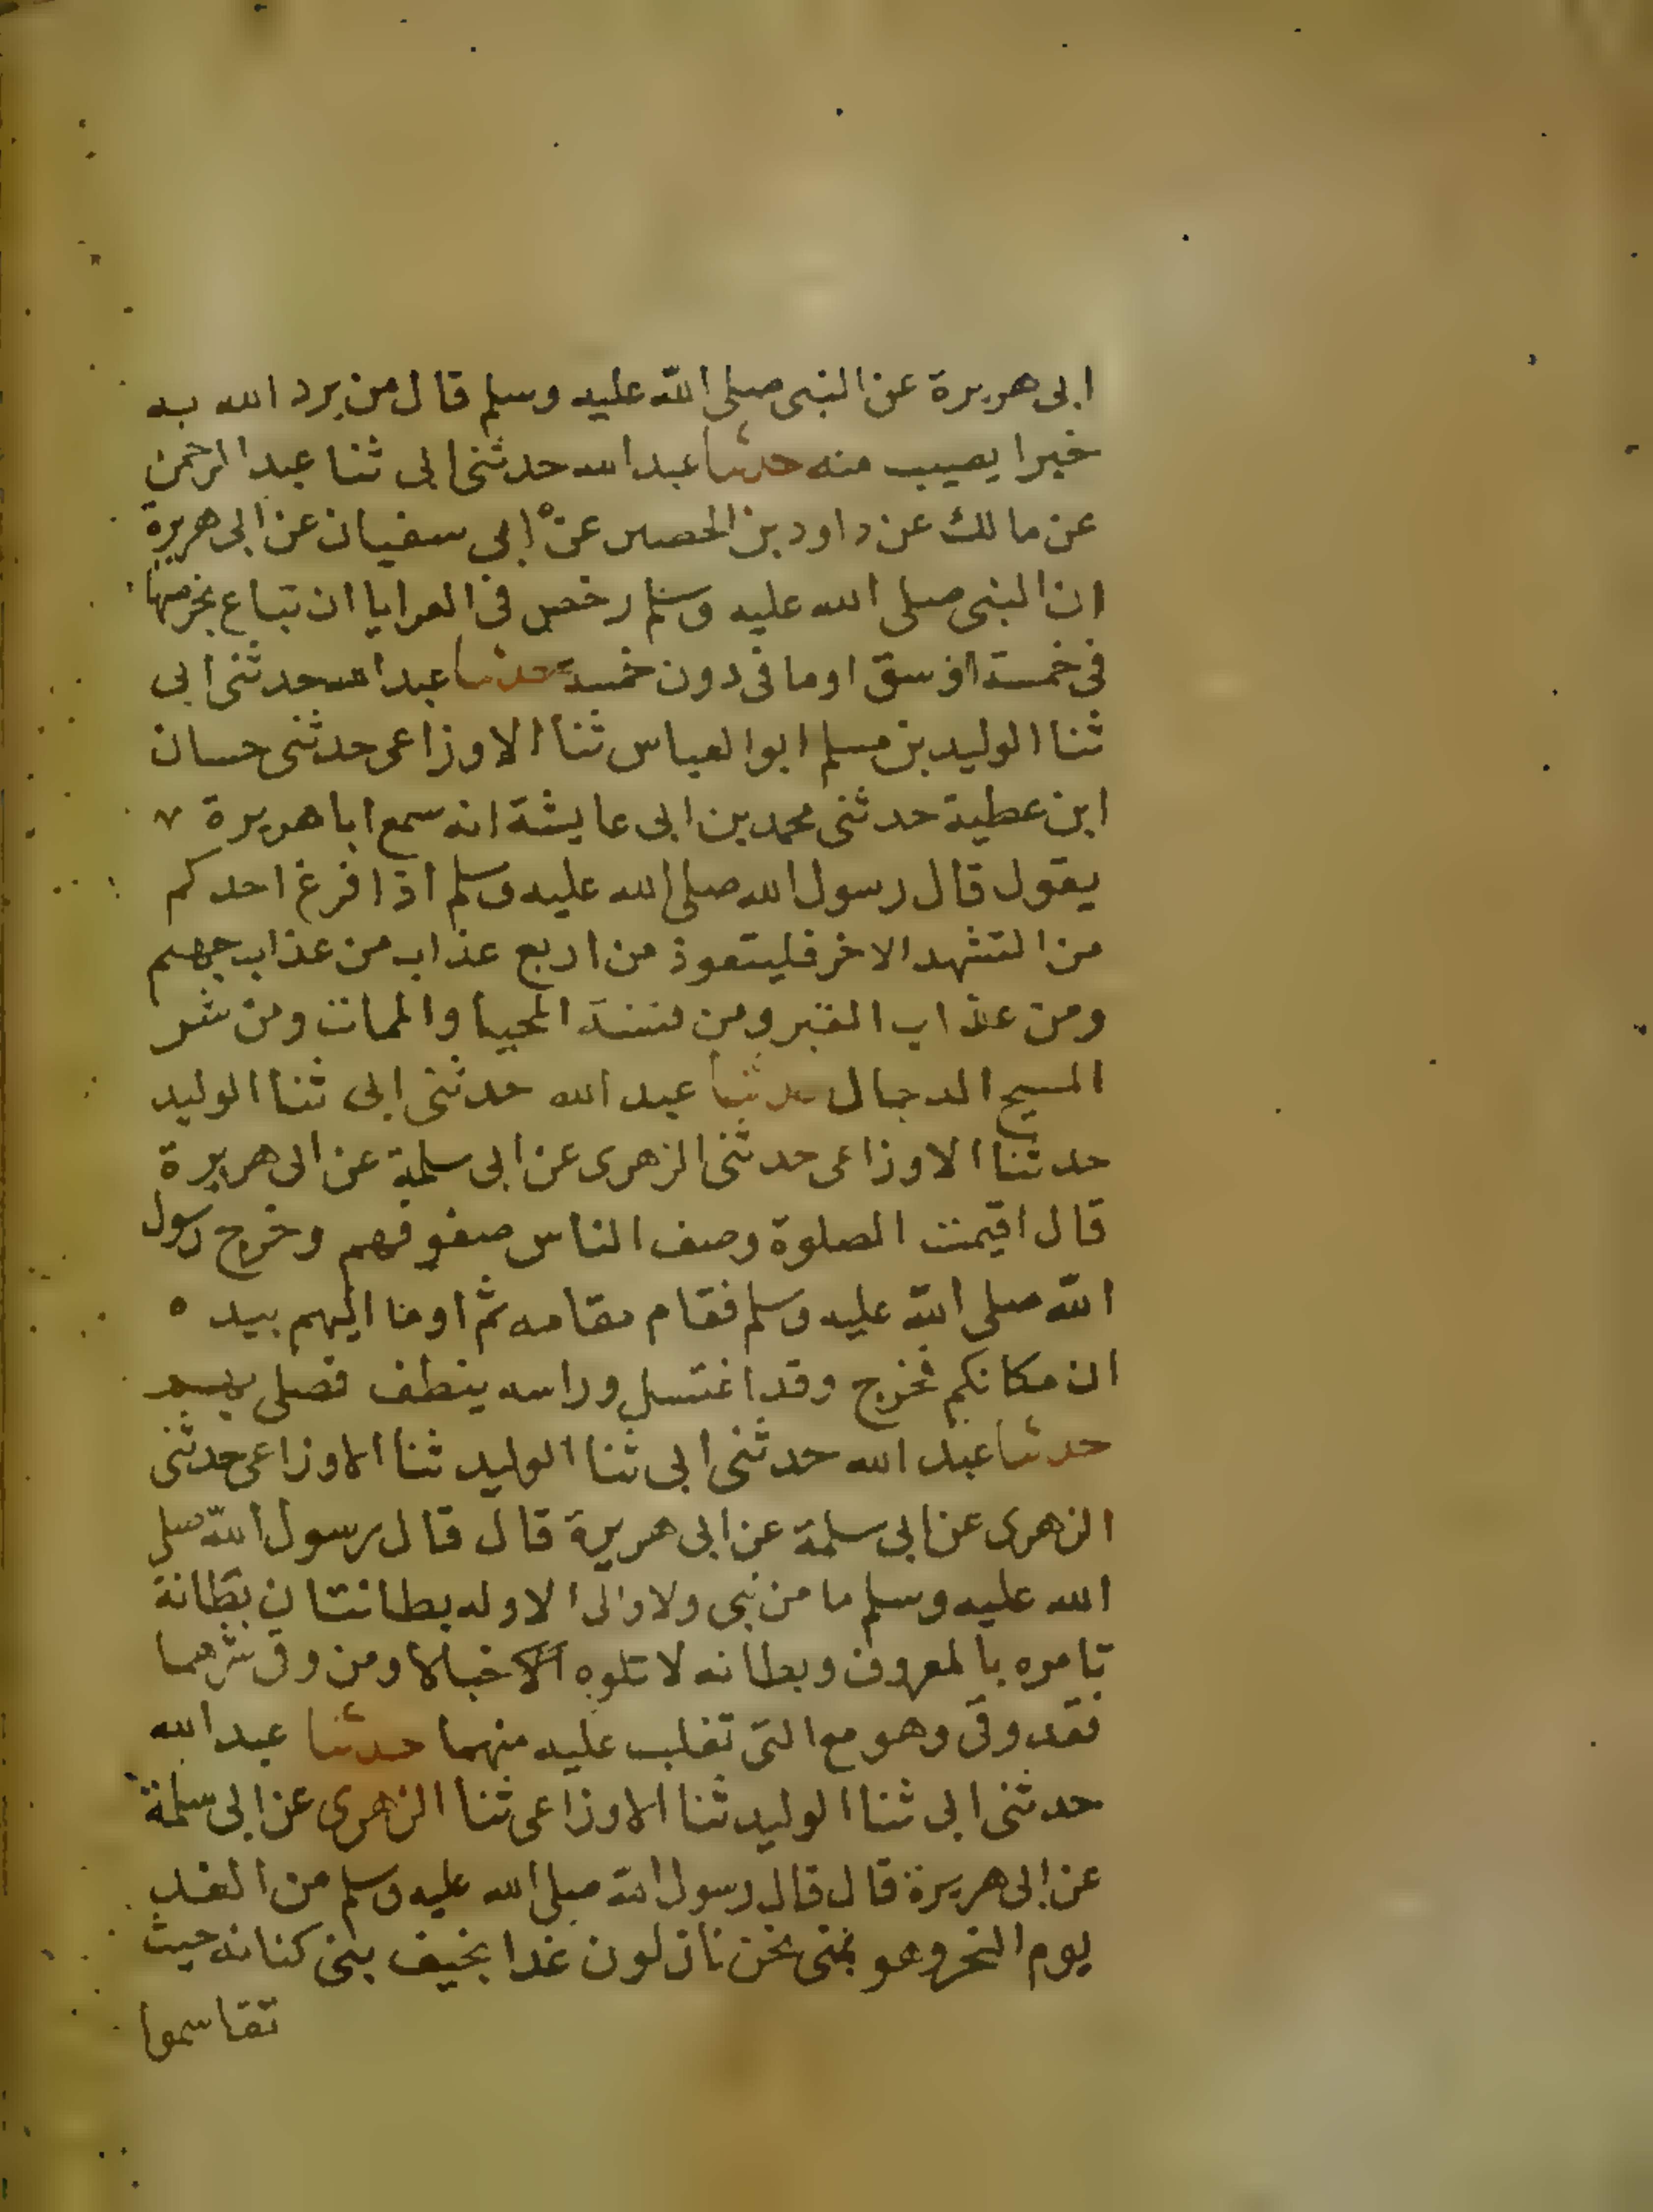 ابى هريرة عن النبى صلى الله عليه وسلم قال من يرد الله به
خيرا يصيب منه حدثنا عبد الله حدثنى ابى ثنا عبد الرحمن
عن مالك عن داود بن الحصين عن ابى سفيان عن ابى هريرة
ان النبى صلى الله عليه وسلم رخص فى العرايا ان تباع بخرصها
فى خمسة اوسق او ما فى دون خمسة حدثنا عبد الله حدثنى ابى
ثنا الوليد بن مسلم ابو العباس ثنا الاوزاعى حدثنى حسان
ابن عطية حدثنى محمد بن ابى عايشة انه سمع ابا هريرة
يقول قال رسول الله صلى الله عليه وسلم اذا فرغ احدكم
من التشهد الاخر فليتعوذ من اربع عذاب من عذاب جهنم
ومن عذاب القبر ومن فتنة المحيا والممات ومن شر
المسيح الدجال حدثنا عبد الله حدثنى ابى ثنا الوليد
حدثنا الاوزاعى حدثنى الزهرى عن ابى سلمة عن ابى هريرة
قال اقيمت الصلوة وصف الناس صفوفهم وخرج رسول
الله صلى الله عليه وسلم فقام مقامه ثم اوما اليهم بيده
ان مكانكم فخرج وقد اغتسل وراسه ينطف فصلى بهم
حدثنا عبد الله حدثنى ابى ثنا الوليد ثنا الاوزاعى حدثنى
الزهرى عن ابى سلمة عن ابى هريرة قال قال رسول الله صلى
الله عليه وسلم ما من نبى ولا والى الا وله بطانتان بطانة
تامره بالمعروف وبطانه لا تلوه الا خبالا ومن وقى شرهما
فقد وقى وهو مع التى تغلب عليه منهما حدثنا عبد الله
حدثنى ابى ثنا الوليد ثنا الاوزاعى ثنا الزهرى عن ابى سلمة
عن ابى هريرة قال قال رسول الله صلى الله عليه وسلم من الغد
يوم النحر وهو بمنى نحن نازلون غدا بخيف بنى كنانه حيث
تقاسموا